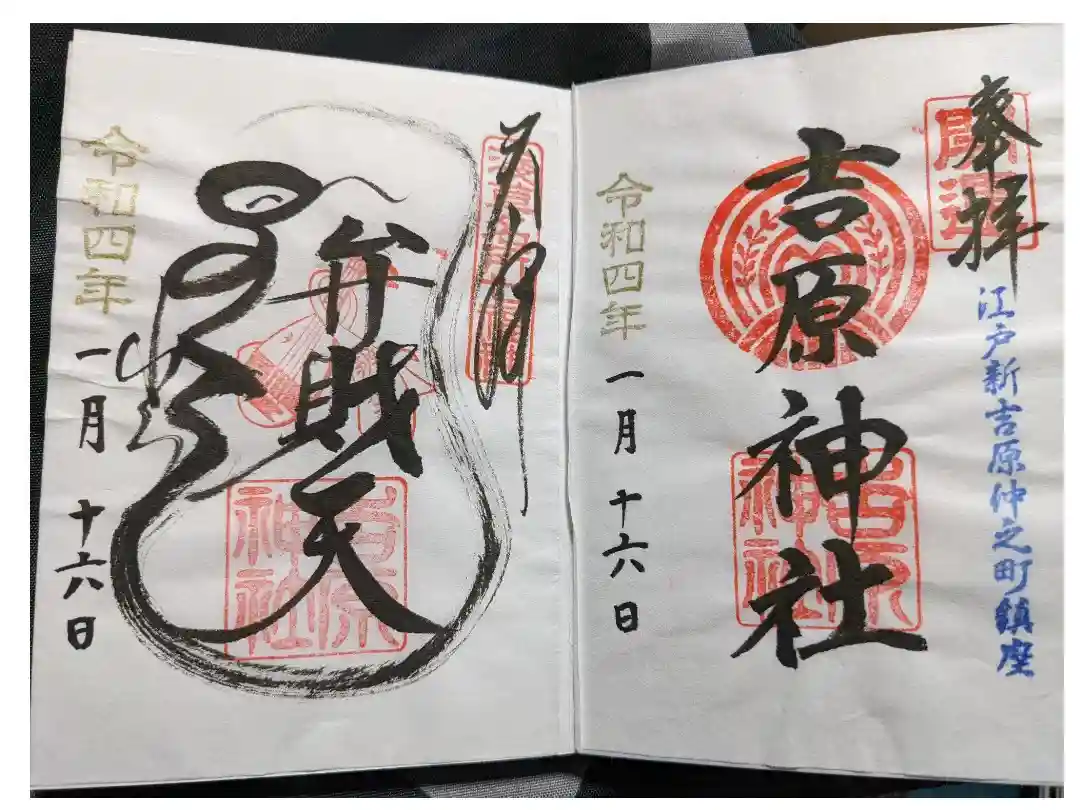 奉拝
開運
江戸新吉原仲之町鎮座
吉原神社
吉原
神社
令和四年
一月
十六日
弁財天
吉原
神社
令和四年
一月
十六日